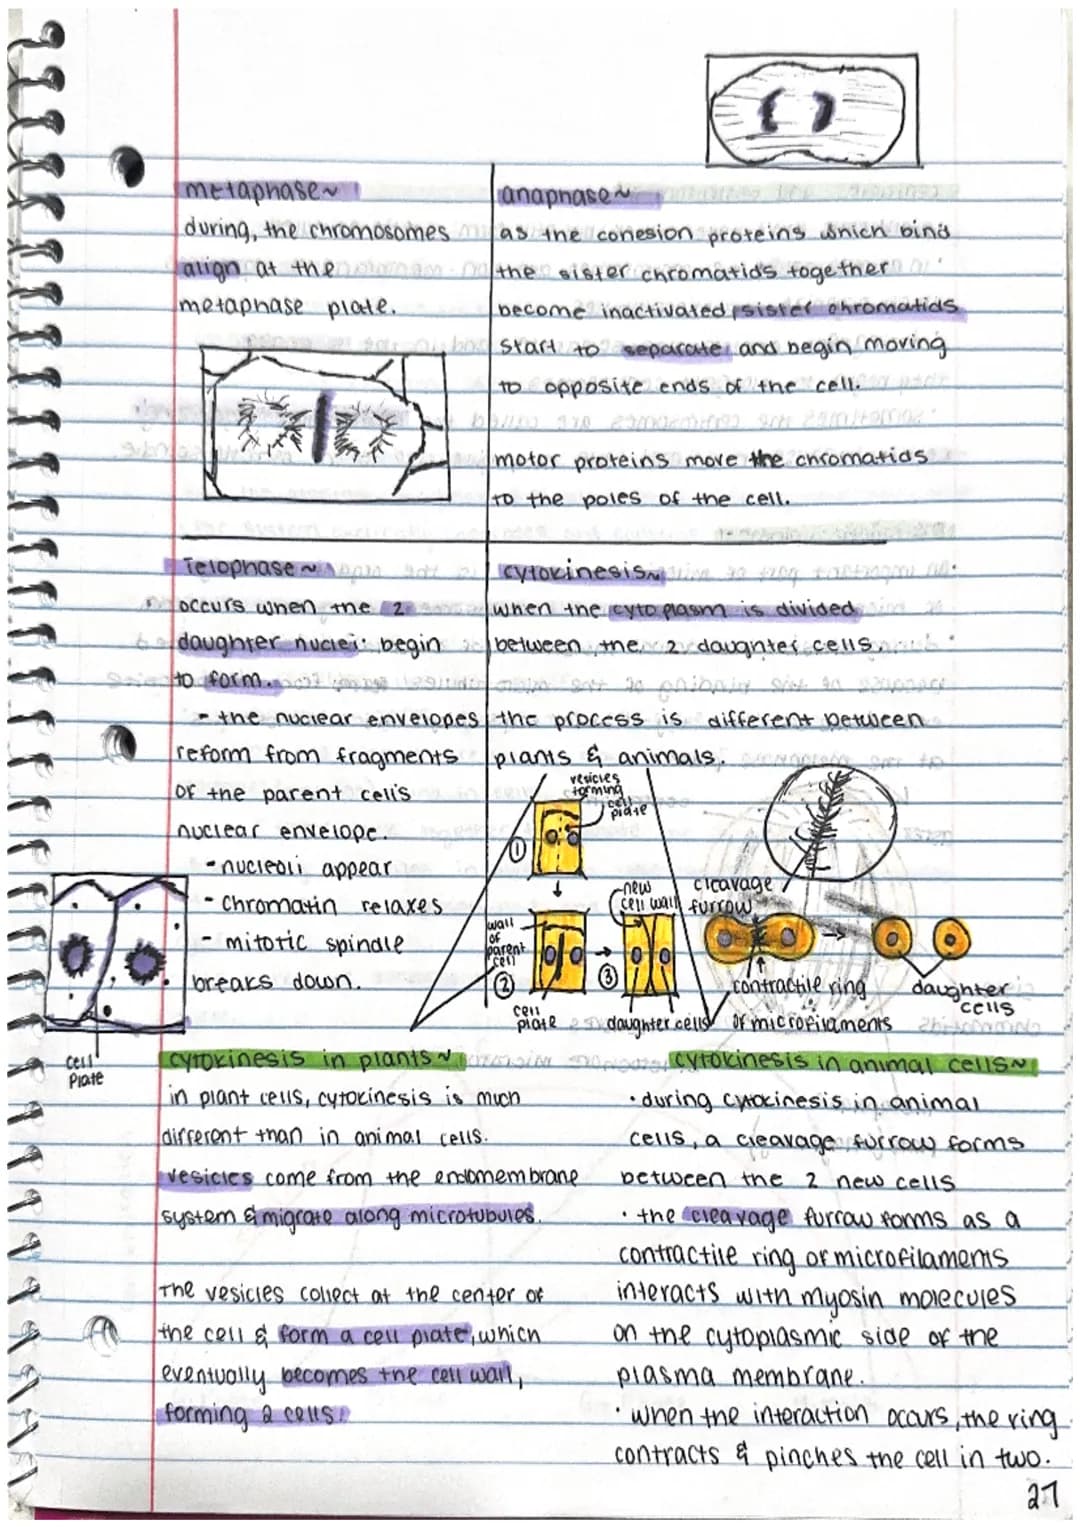 metaphase~
during, the chromosomes
align at the
metaphase plate.
anaphase~
as the cohesion proteins which bind
the sister chromatids together
become inactivated, sister chromatids
start to separate, and begin moving
to opposite ends of the cell.
motor proteins move the chromatids
to the poles of the cell.
Telophase~
occurs when the 2
daughter nuclei begin
to form.
- the nuclear envelopes
reform from fragments
of the parent cell's
nuclear envelope.
- nucleoli appear
- Chromatin relaxes
- mitotic spindle
breaks down.
cell
Plate
cytokinesis~
when the cytoplasm is divided
between the 2 daughter cells.
the process is different between
plants & animals.
vesicles
forming
cell
plate
1
wall
of
parent
cell
2
cell
plate
new
cell wall
3
daughter cells
cleavage
furrow
contractile ring
of microfilaments
daughter
cells
cytokinesis in plants~
in plant cells, cytokinesis is much
different than in animal cells.
vesicles come from the endomembrane
system & migrate along microtubules.
The vesicles collect at the center of
the cell & form a cell plate, which
eventually becomes the cell wall,
forming 2 cells.
cytokinesis in animal cells~
• during cytokinesis in animal
cells, a cleavage furrow forms
between the 2 new cells
• the cleavage furrow forms as a
contractile ring of microfilaments
interacts with myosin molecules
on the cytoplasmic side of the
plasma membrane.
• when the interaction occurs, the ring
contracts & pinches the cell in two.
27